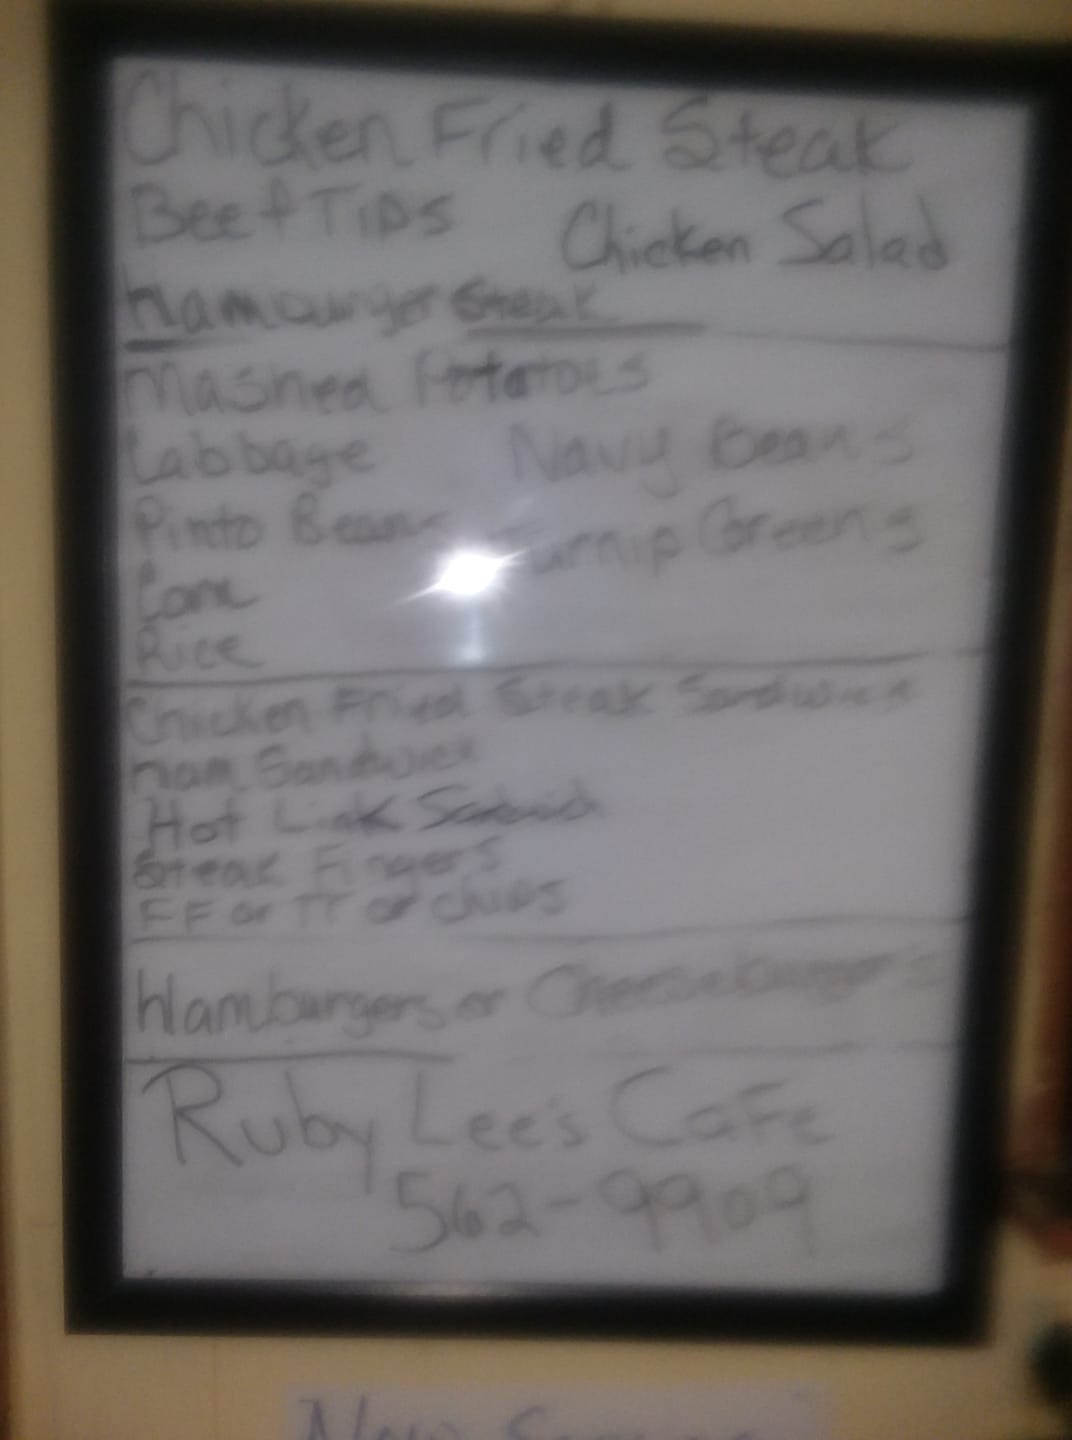 Chicken Fried Steak
Beef Tips Chicken Salad
Hamburger Steak
Mashed Potatoes
Cabbage Navy Beans
Pinto Beans Turnip Greens
Corn
Rice
Chicken Fried Steak Sandwich
Ham Sandwich
Hot Link Sandwich
Steak Fingers
FF or TT or chips
Hamburgers or Cheeseburgers
Ruby Lee's CaFe
562-9909
Now